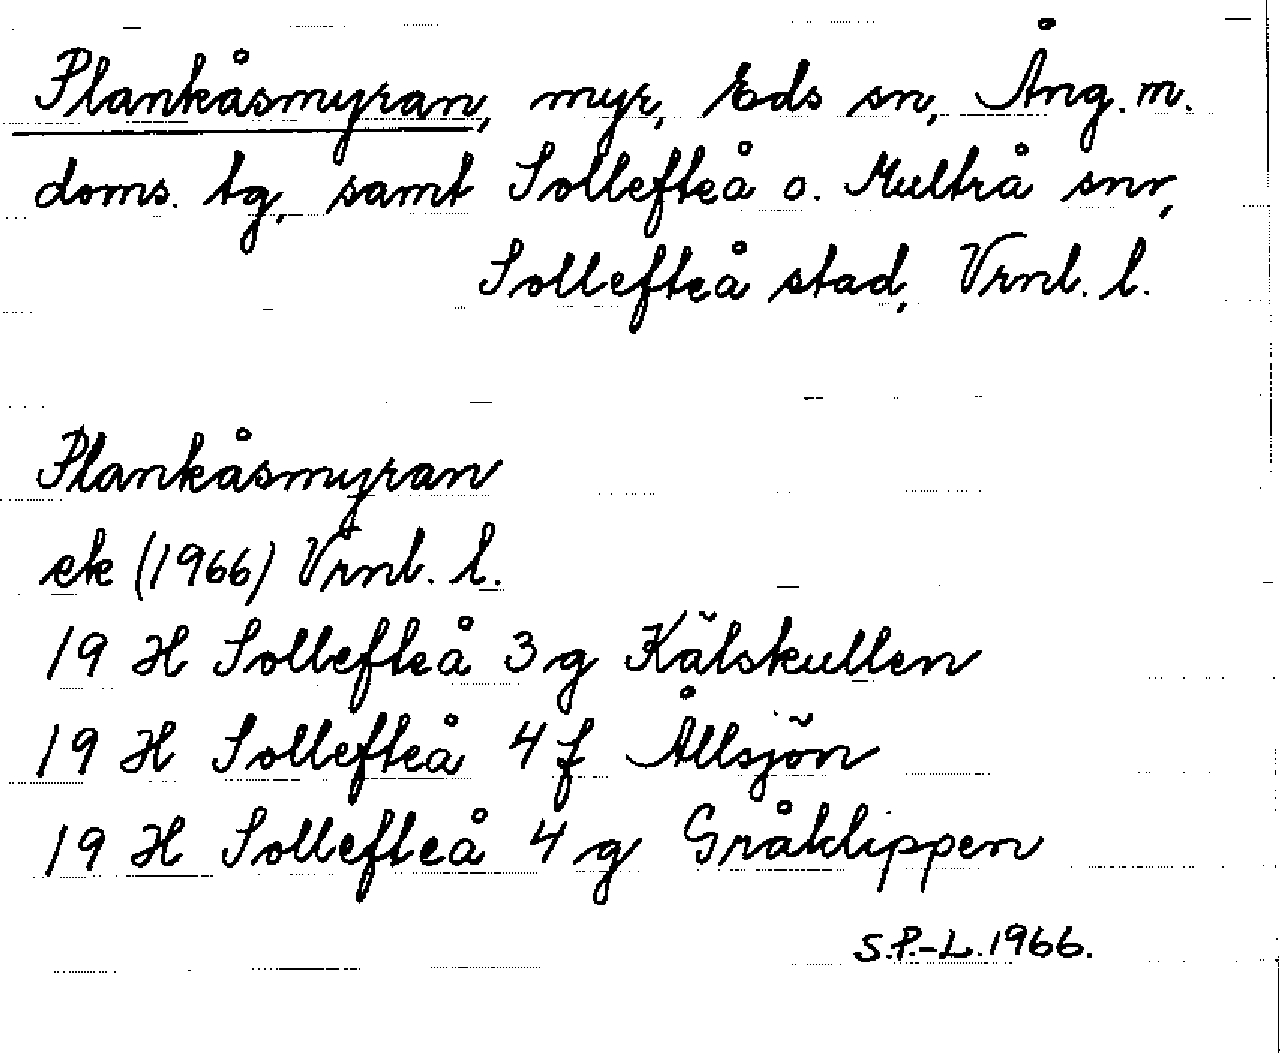 Plankåsmyran, myr, Eds sn, Ång. m.
doms. tg, samt Sollefteå o. Multrå snr,
Sollefteå stad, Vrnl. l.
Plankåsmyran
ek (1966) Vrnl. l.
19 H Sollefteå 3 g Kälskullen
19 H Sollefteå 4 f Ållsjön
19 H Sollefteå 4 g Gråklippen
S.P.-L. 1966.